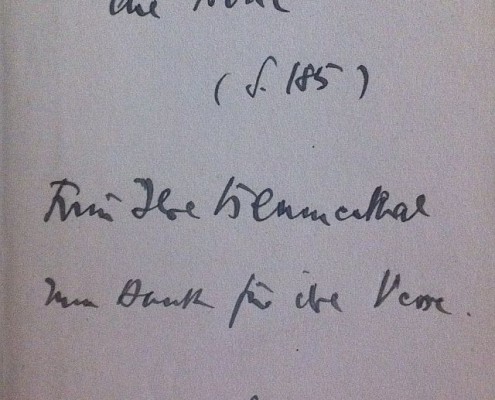 die
(S. 185)
Ilse Blumenthal
zum Dank für ihre Verse.